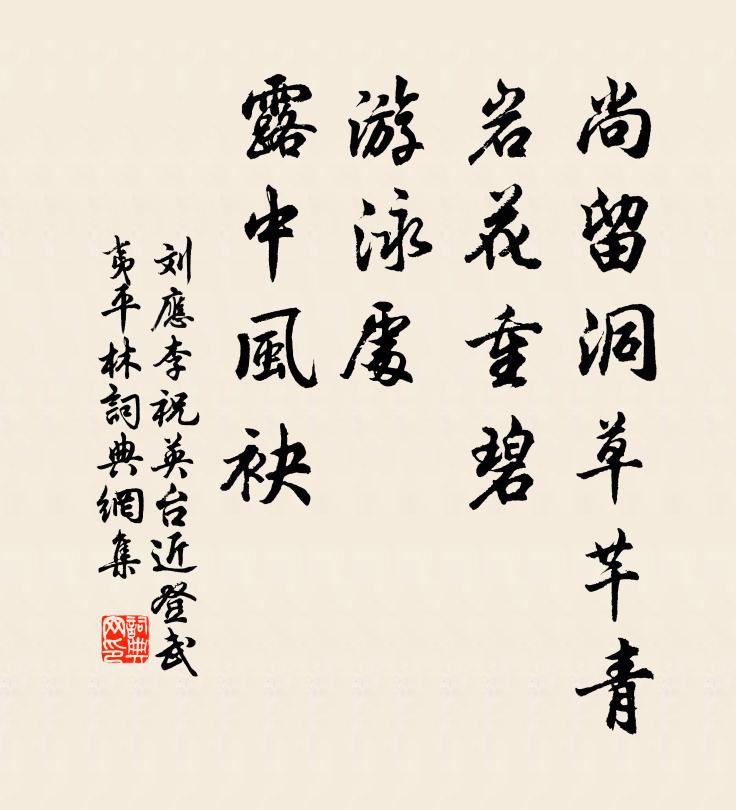 尚留洞草芊青
岩花重碧
游泳處
露中風袂
刘應李祝英台近登武
夷平林詞典網集
詞典
网印